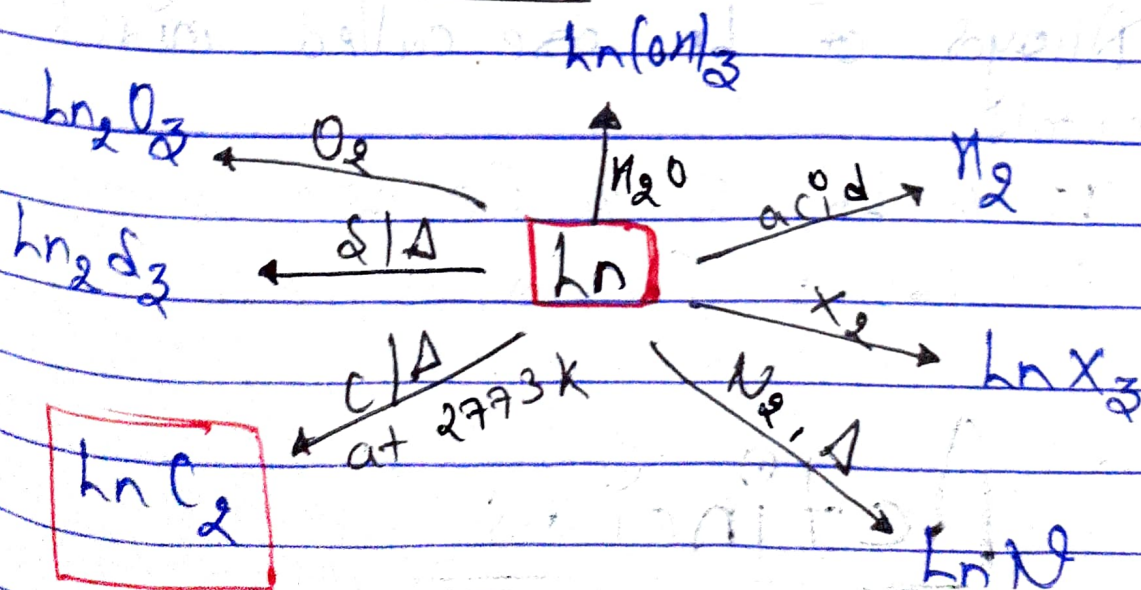 Ln(OH)3
Ln2O3
O2
H2O
acid
H2
Ln2S3
S/Δ
Ln
X2
LnX3
C/Δ
at 2773K
N2, Δ
LnC2
LnN